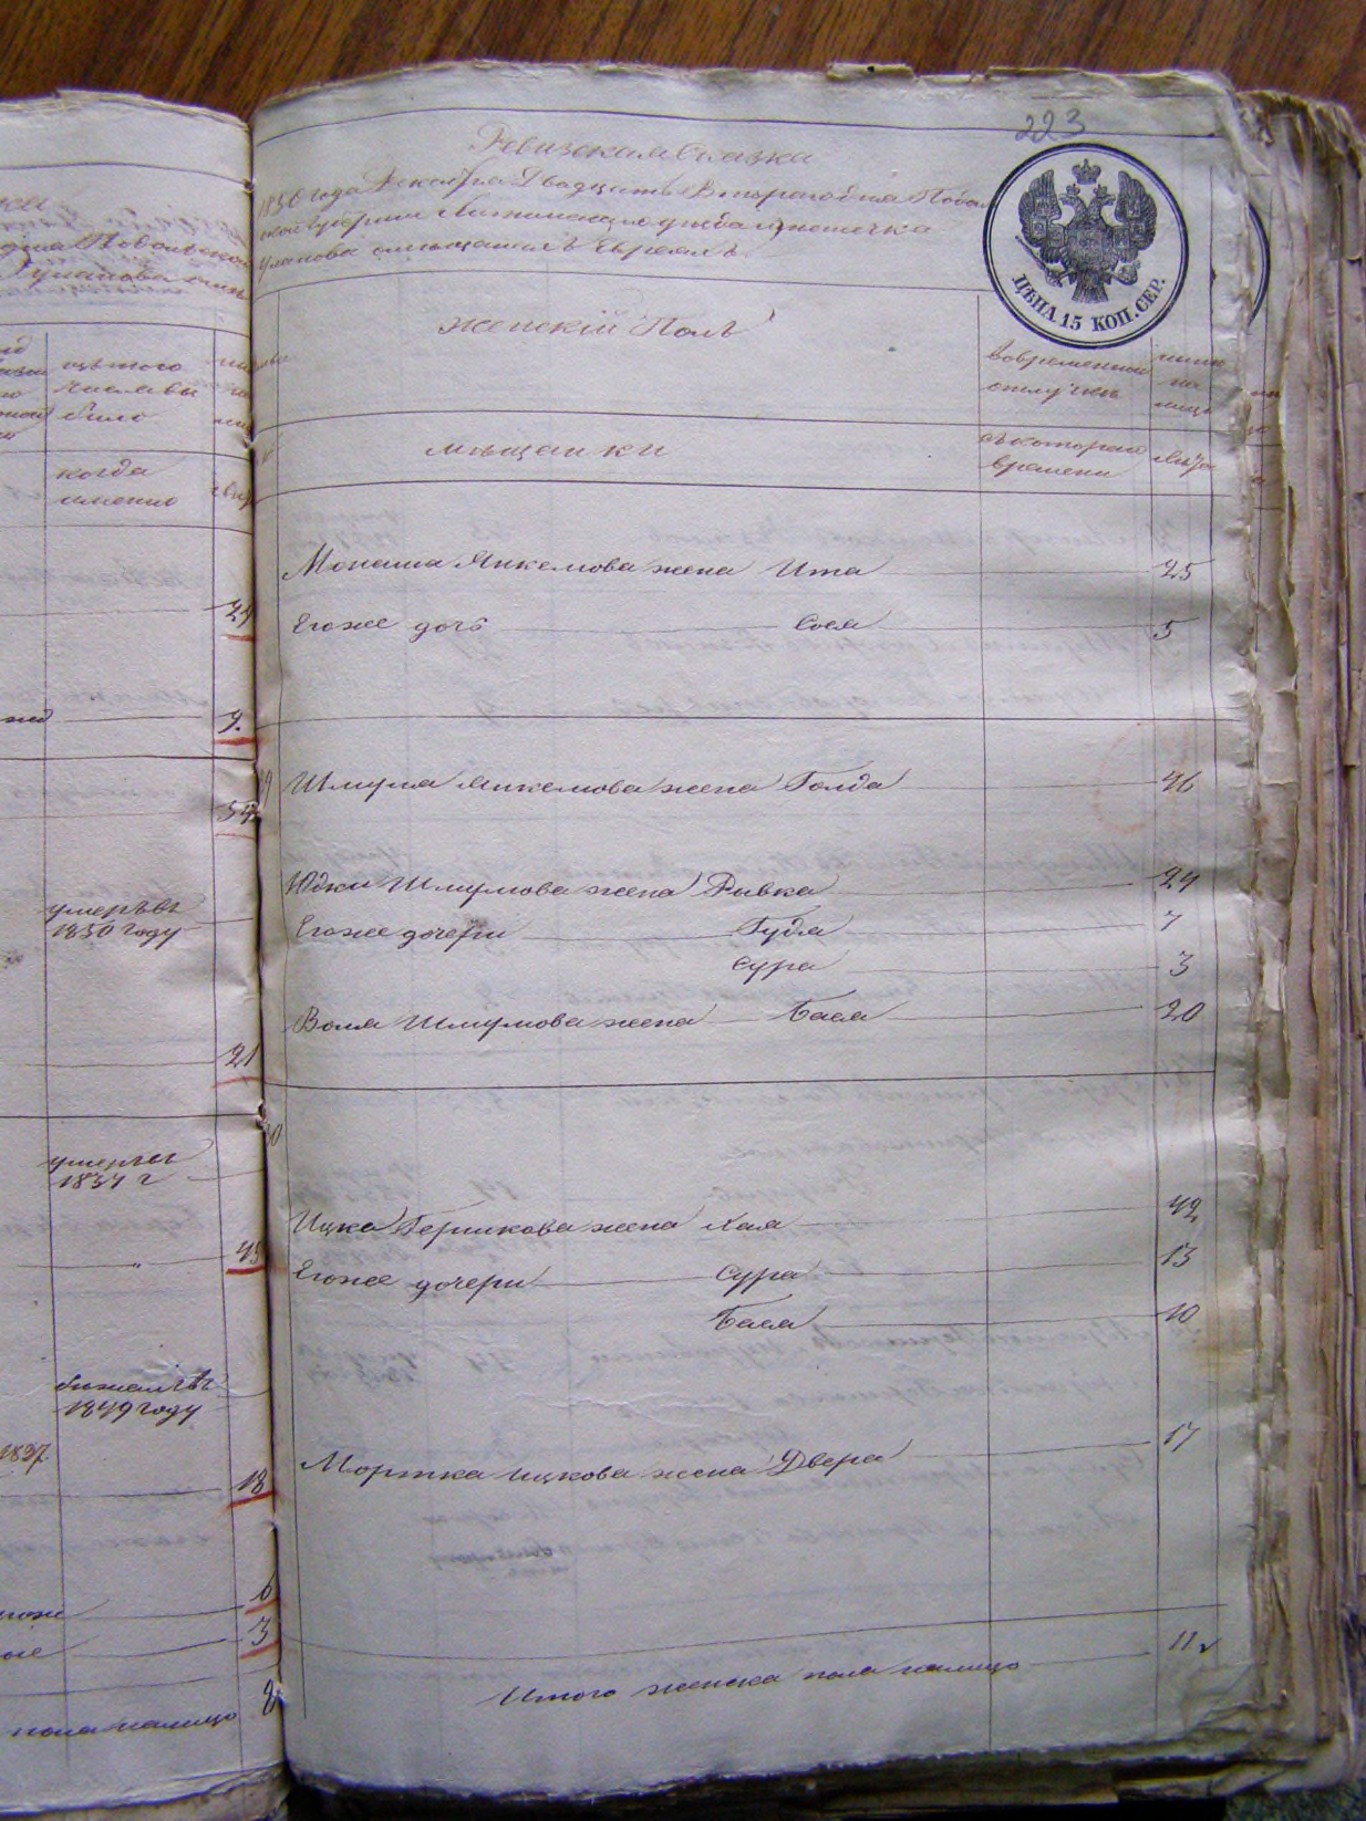 223
Ревизская Сказка
1850 года Декабря Двадцать Втораго дня Подоль
ской Губернии Литинскаго уезда местечка
Уланова о мещанахъ Евреяхъ
ЦѢНА 15 КОП. СЕР.
Женскій Полъ
вовременной
отлучке
ныне
на
лицо
мещанки
съ котораго
времени
лѣта
Монаша Янкелова жена Ита 25
Егоже дочь Сося 5
Шмуля Янкелова жена Голда 46
Юдки Шмулова жена Рывка 24
Егоже дочери Гудля 7
Сура 3
Воля Шмулова жена Бася 20
Ицка Гершкова жена Хая 42
Егоже дочери Сура 13
Бася 10
Мортка Ицкова жена Двера 17
Итого женска пола налицо 11
цѣтого
числа вы
было
когда
именно
24
9.
54
умеръ въ
1850 году
21
умеръ въ
1837 г
45
бежалъ въ
1849 году
1837
18
6
3
пола налицо 8